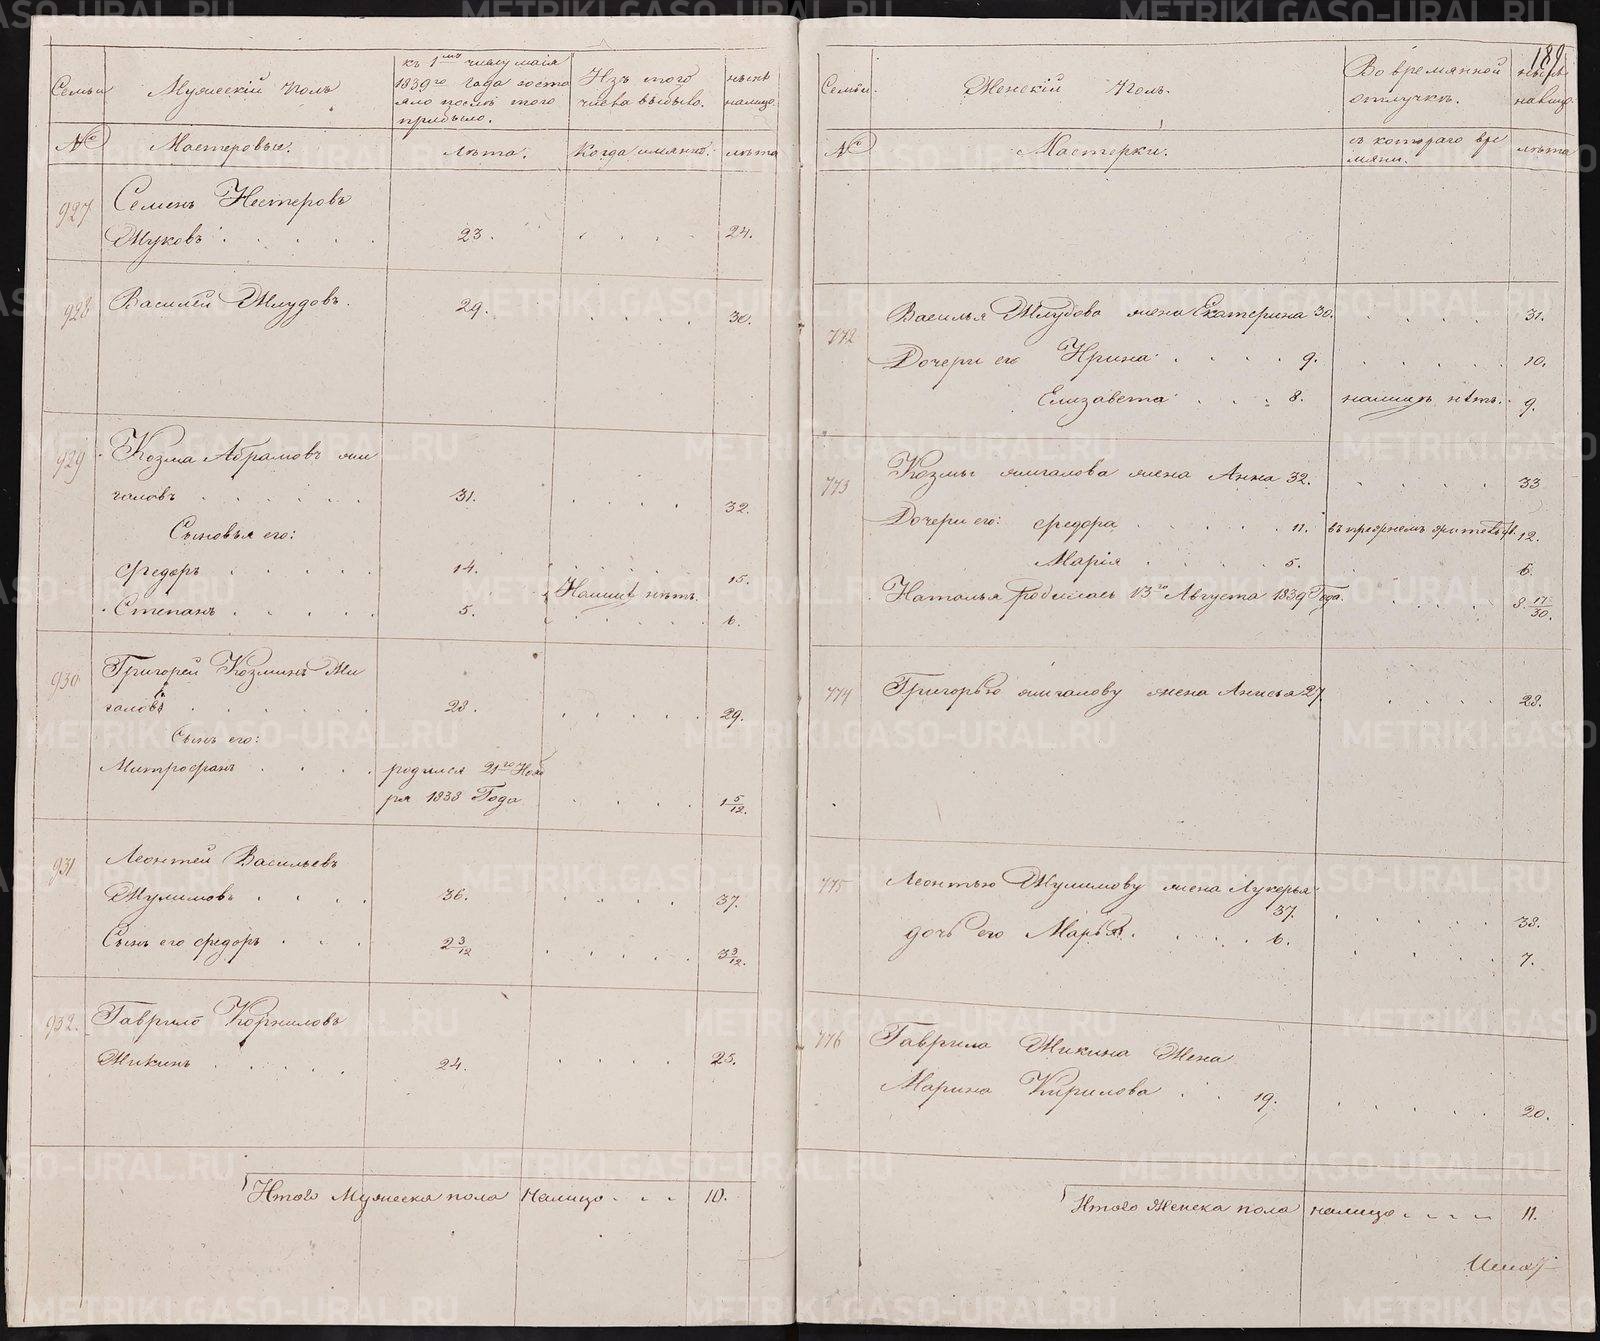 Семьи
Мужескій Полъ
къ 1мъ числу маія
1839го Года состо
яло после того
прибыло.
Изъ того
числа выбыло.
нынѣ
налицо
№
Мастеровые.
лѣта.
Когда имянно.
лѣта
927
Семенъ Нестеровъ
Жуковъ . . . . 23. . . . . 24.
928
Василей Жлудовъ. 29. . . . . 30.
929
Козма Абрамовъ жи
галовъ . . . . . . 31. . . . . 32.
Сыновья его:
Федоръ . . . . . 14. . . . . 15.
Степанъ . . . . . 5. Налицѣ нѣтъ. 6.
930
Григорей Козминъ Жи
галовъ . . . . . . 28. . . . . 29.
Сынъ его:
Митрофанъ . . . . родился 21го Нояб
ря 1838 Года . . . . 1 5/12.
931
Леонтей Васильевъ
Жулимовъ . . . . 36. . . . . 37.
Сынъ его Федоръ . . . 2 3/12 . . . . . 3 3/12.
932.
Гаврило Корниловъ
Жикинъ . . . . . 24. . . . . 25.
Итого Мужеска пола налицо . . . 10.
189
Семьи.
Женскій Полъ.
Во времянной
отлучкѣ.
нынѣ
налицо
№
Мастерки.
съ котораго вре
мяни.
лѣта
772
Василья Жлудова жена Екатерина 30. . . . . 31.
Дочери его Ирина . . . . 9. . . . . 10.
Елизавета . . . 8. налицѣ нѣтъ. 9.
773
Козмы жигалова жена Анна 32. . . . . 33
Дочери его: Федора . . . . . 11. въ прежнемъ 12.
Марія . . . . . 5. 6.
Наталья родилась 13го Августа 1839 Года . . . . 8. 17/30.
774
Григорью жигалову жена Анисья 27. . . . . 28.
775
Леонтью Жулимову жена Лукерья
37. . . . . 38.
дочь его Марья . . . . . 6. . . . . 7.
776
Гаврила Жикина Жена
Марина Кирилова . . 19. . . . . 20.
Итого Женска пола налицо . . . . 11.
METRIKI.GASO-URAL.RU